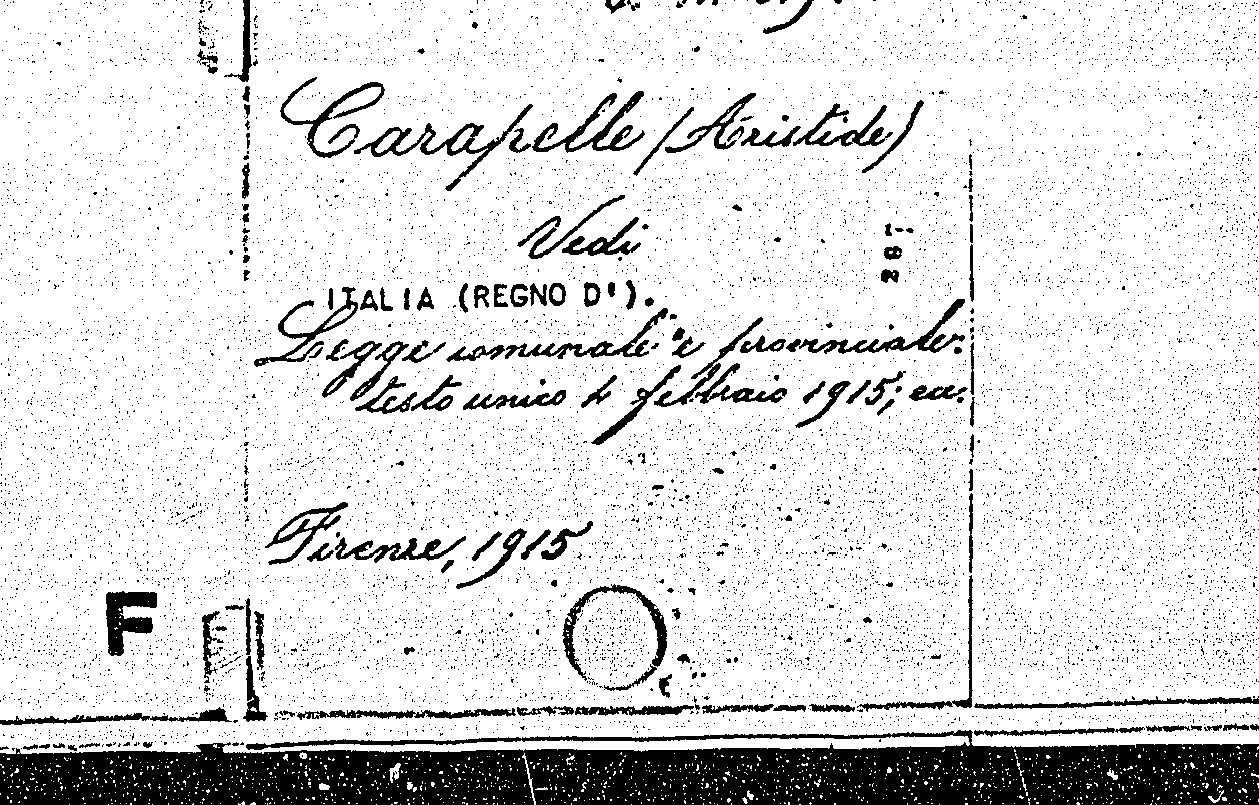 Carapelle (Aristide)
Vedi
ITALIA (REGNO D').
Legge comunale e provinciale:
testo unico 4 febbraio 1915; ecc.
Firenze, 1915
F